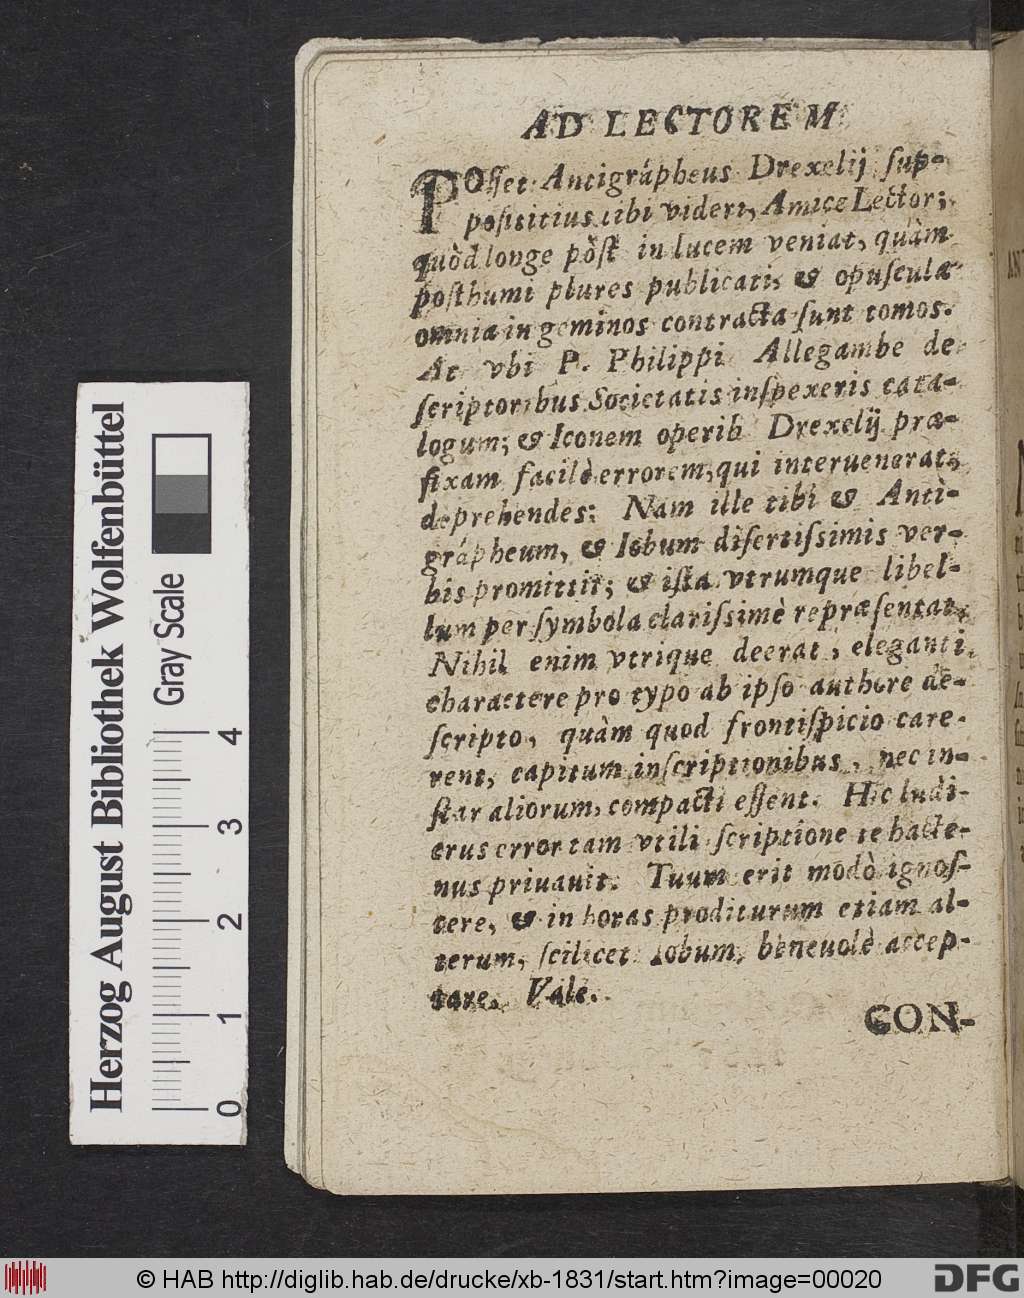 AD LECTOREM
POſſet Antigrápheus Drexelij ſup-
poſititius tibi videri, Amice Lector;
quòd longe pòſt in lucem veniat, quàm
poſthumi plures publicati, & opuſcula
omnia in geminos contracta ſunt tomos.
At vbi P. Philippi Allegambe de
ſcriptoribus Societatis inſpexeris cata-
logum; & Iconem operib Drexelij præ-
fixam facilè errorem, qui interuenerat,
deprehendes: Nam ille tibi & Anti-
grápheum, & Iobum diſertiſsimis ver-
bis promittit; & iſta vtrumque libel-
lum per ſymbola clariſsimè repræſentat.
Nihil enim vtrique deerat, eleganti
charactere pro typo ab ipſo authore de-
ſcripto, quàm quod frontiſpicio care-
rent, capitum inſcriptionibus, nec in-
ſtar aliorum, compacti eſſent. Hic ludi-
crus error tam vtili ſcriptione te hacte-
nus priuauit. Tuum erit modò ignoſ-
cere, & in horas proditurum etiam al-
terum, ſcilicet Iobum, beneuolè accep-
tare. Vale.
CON-
Herzog August Bibliothek Wolfenbüttel
Gray Scale
0 1 2 3 4
© HAB http://diglib.hab.de/drucke/xb-1831/start.htm?image=00020
DFG